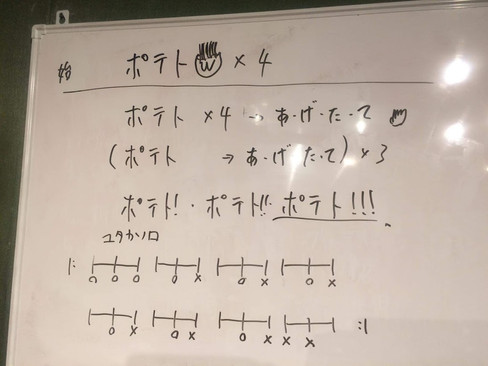 始 ポテト × 4
ポテト ×4 → あ・げ・た・て
(ポテト → あ・げ・た・て) × 3
ポテト!・ポテト!!・ポテト!!!
ユタカソロ
|: o o o o x o x o x
o x o x o x x x :|